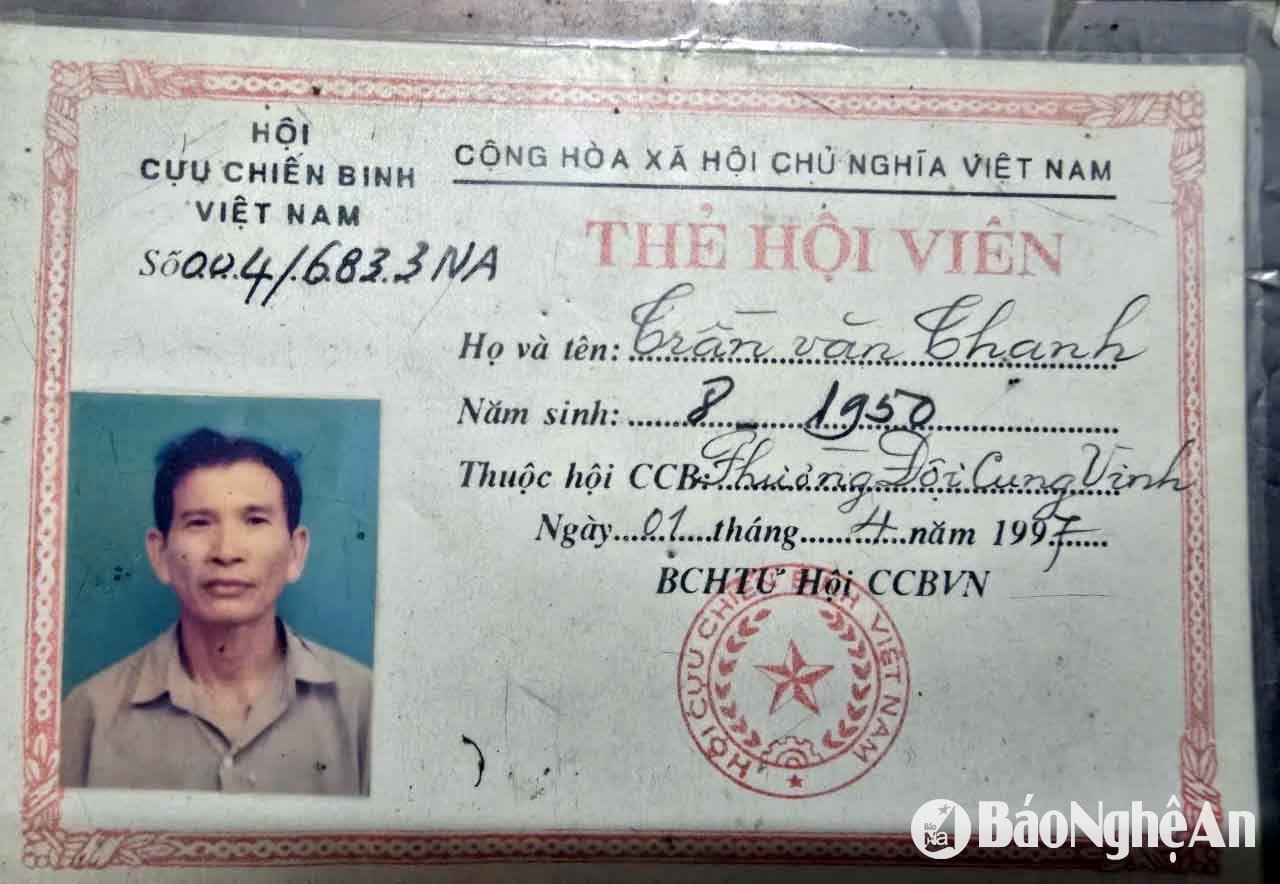 HỘI
CỰU CHIẾN BINH
VIỆT NAM
Số 004/6833 NA
CỘNG HÒA XÃ HỘI CHỦ NGHĨA VIỆT NAM
THẺ HỘI VIÊN
Họ và tên: Trần văn Thanh
Năm sinh: 8 1950
Thuộc hội CCB: Phường Đội Cung Vinh
Ngày 01 tháng 4 năm 1997
BCHTƯ Hội CCBVN
HỘI CỰU CHIẾN BINH VIỆT NAM
Báo Na BáoNghệAn